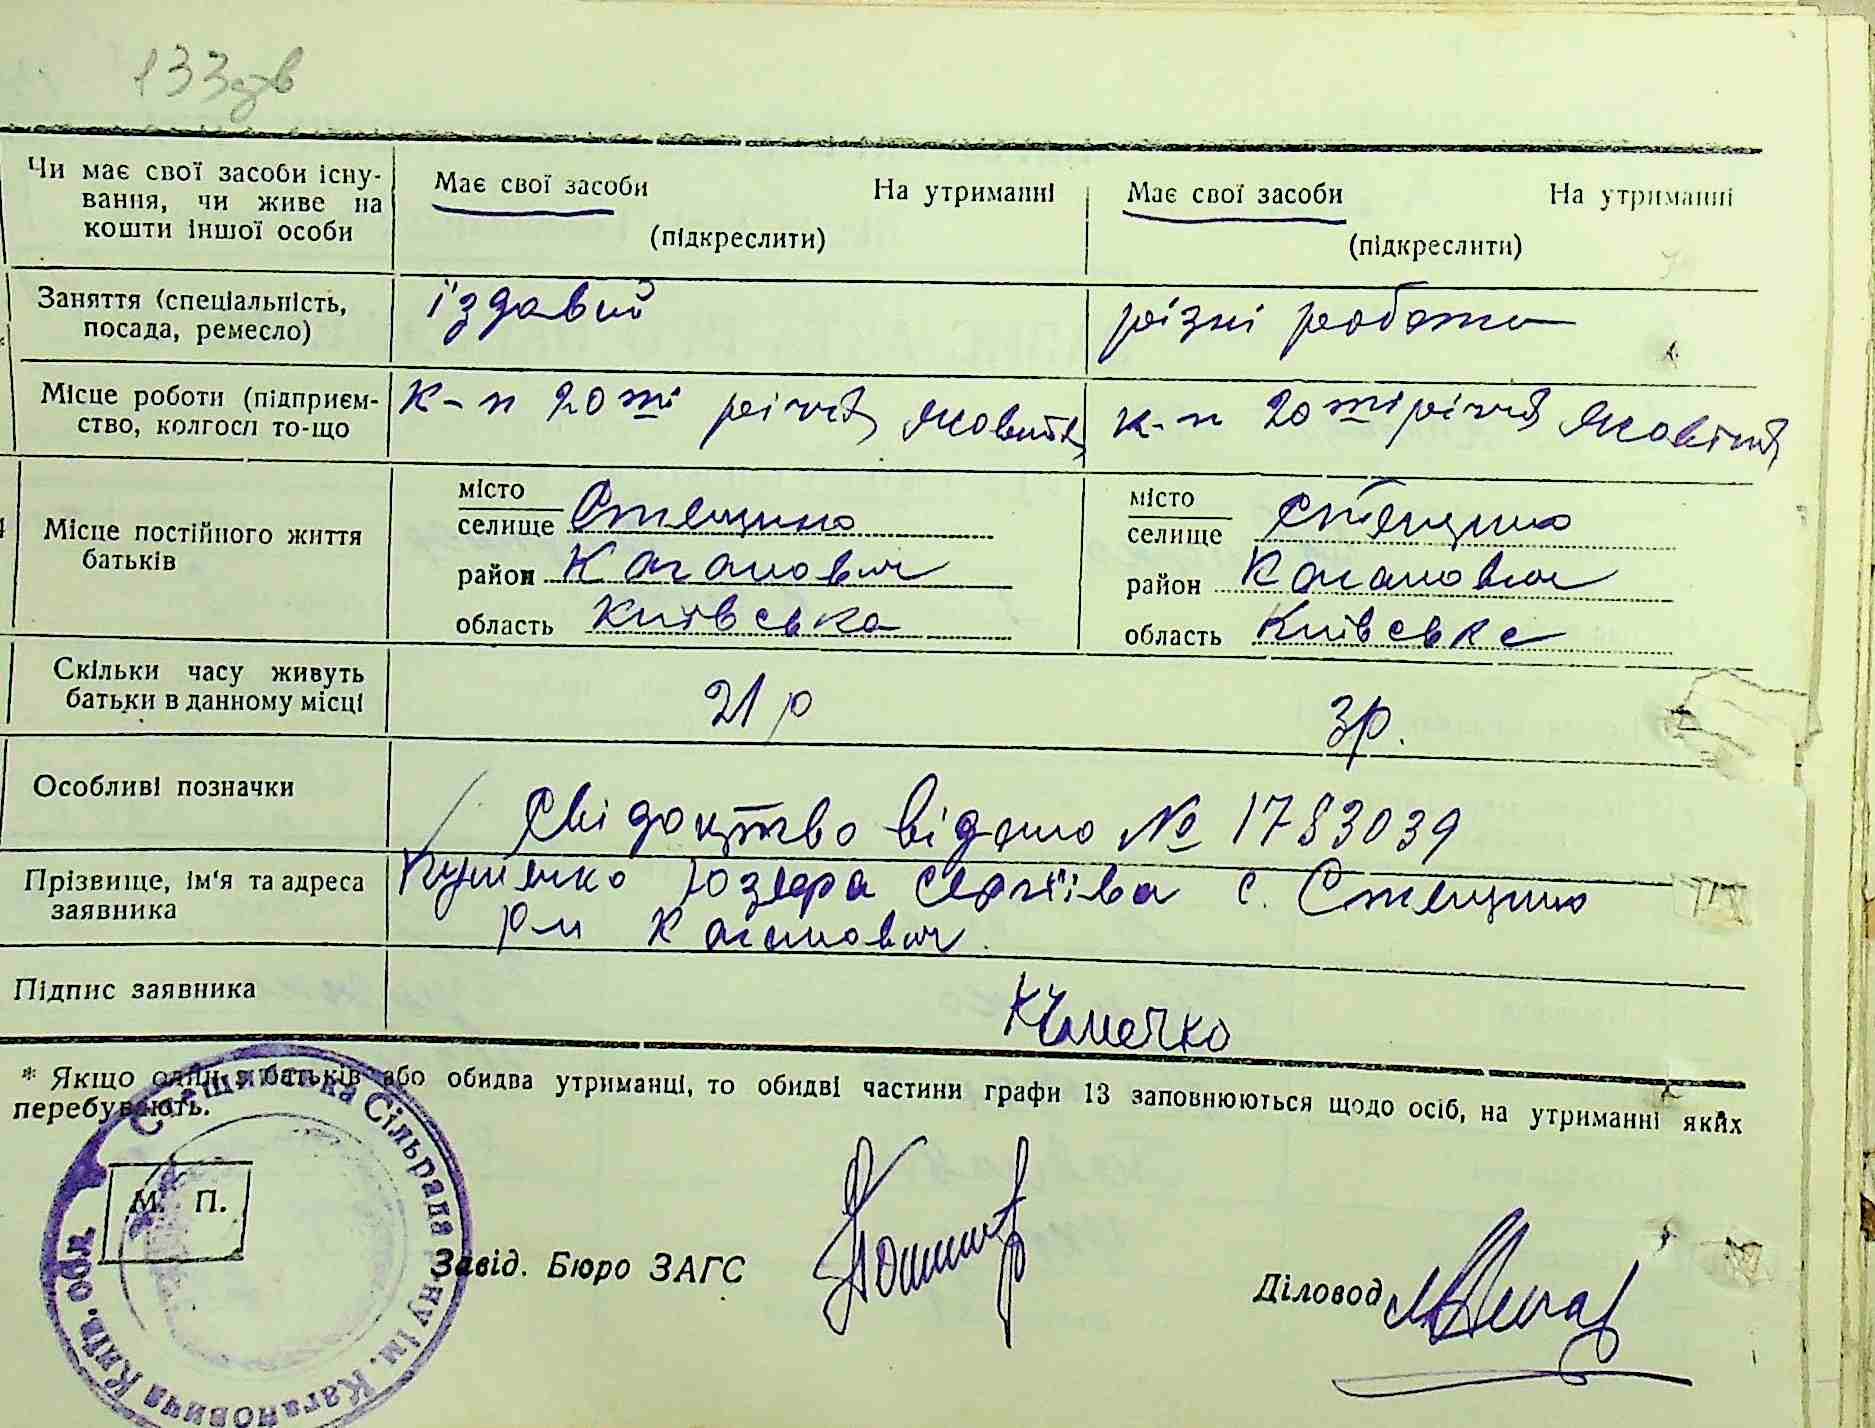 133зв
Чи має свої засоби існу-
вання, чи живе на
кошти іншої особи
Має свої засоби На утриманні
(підкреслити)
Має свої засоби На утриманні
(підкреслити)
Заняття (спеціальність,
посада, ремесло)
їздавий
різні роботи
Місце роботи (підприєм-
ство, колгосп то-що
к-п 20ті річчя
к-п 20ті річчя
Місце постійного життя
батьків
місто
селище Стещино
район Каганович
область Київська
місто
селище Стещино
район Каганович
область Київська
Скільки часу живуть
батьки в данному місці
21 р
3р.
Особливі позначки
Свідоцтво відано № 1783039
Прізвище, ім'я та адреса
заявника
Юзефа с. Стещино
р-н Каганович.
Підпис заявника
* Якщо один з батьків або обидва утриманці, то обидві частини графи 13 заповнюються щодо осіб, на утриманні яких
перебувають.
М. П.
Стещинська Сільрада р-ну ім. Кагановича Київ. обл.
Завід. Бюро ЗАГС
Діловод